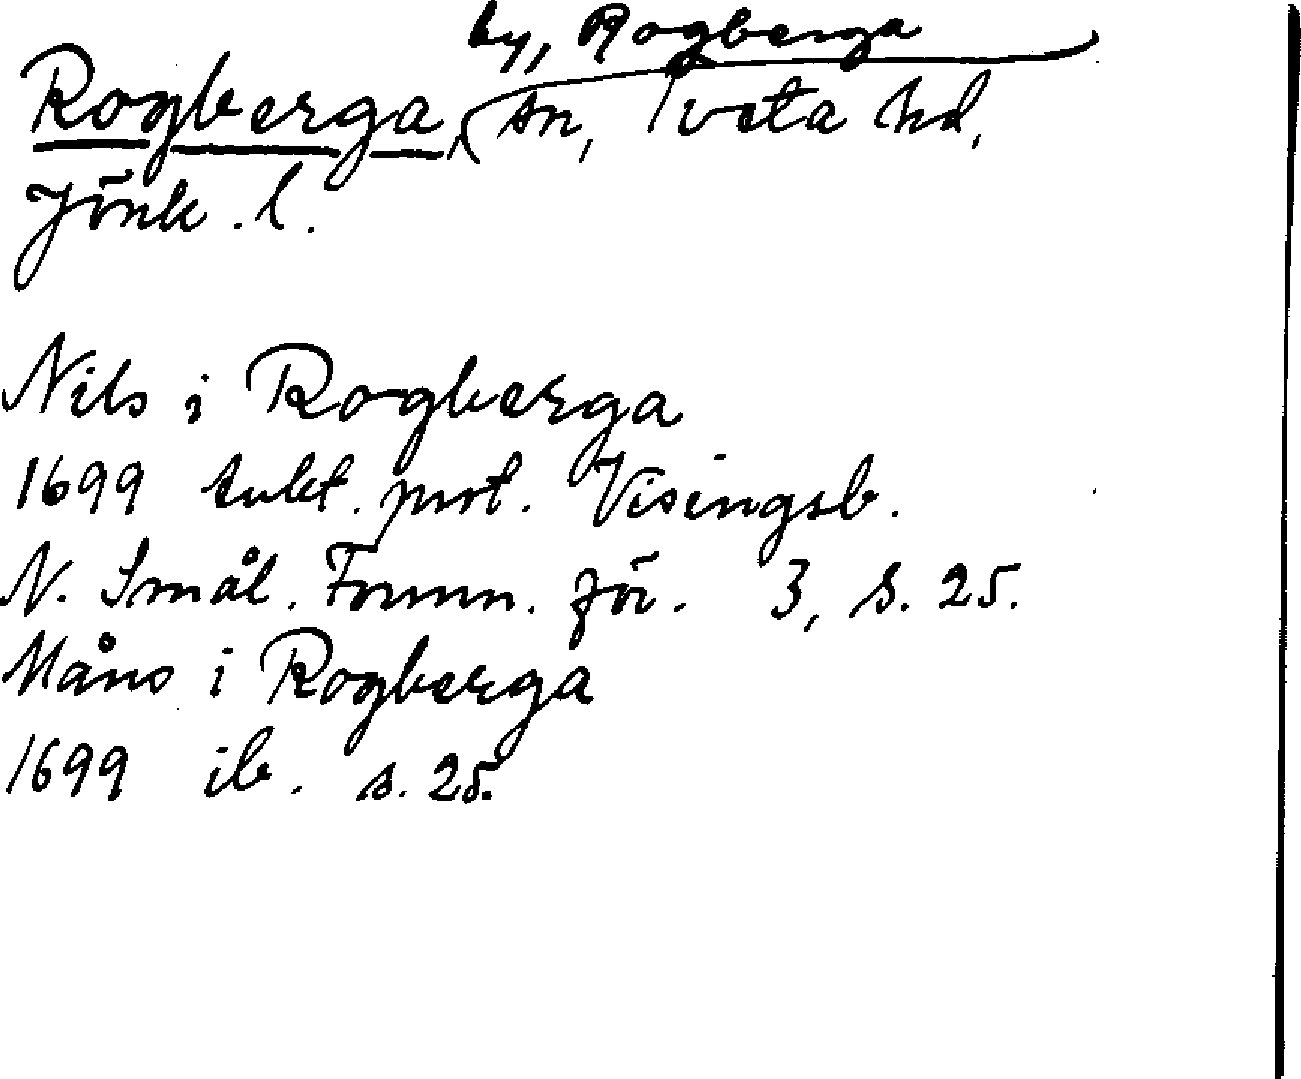 by, Rogberga
Rogberga, sn, Tveta hd,
Jönk. l.
Nils i Rogberga
1699 Avkt. prot. Visingsb.
N. Smål. Fornm. för. 3, s. 25.
Måns i Rogberga
1699 ib. s. 25.